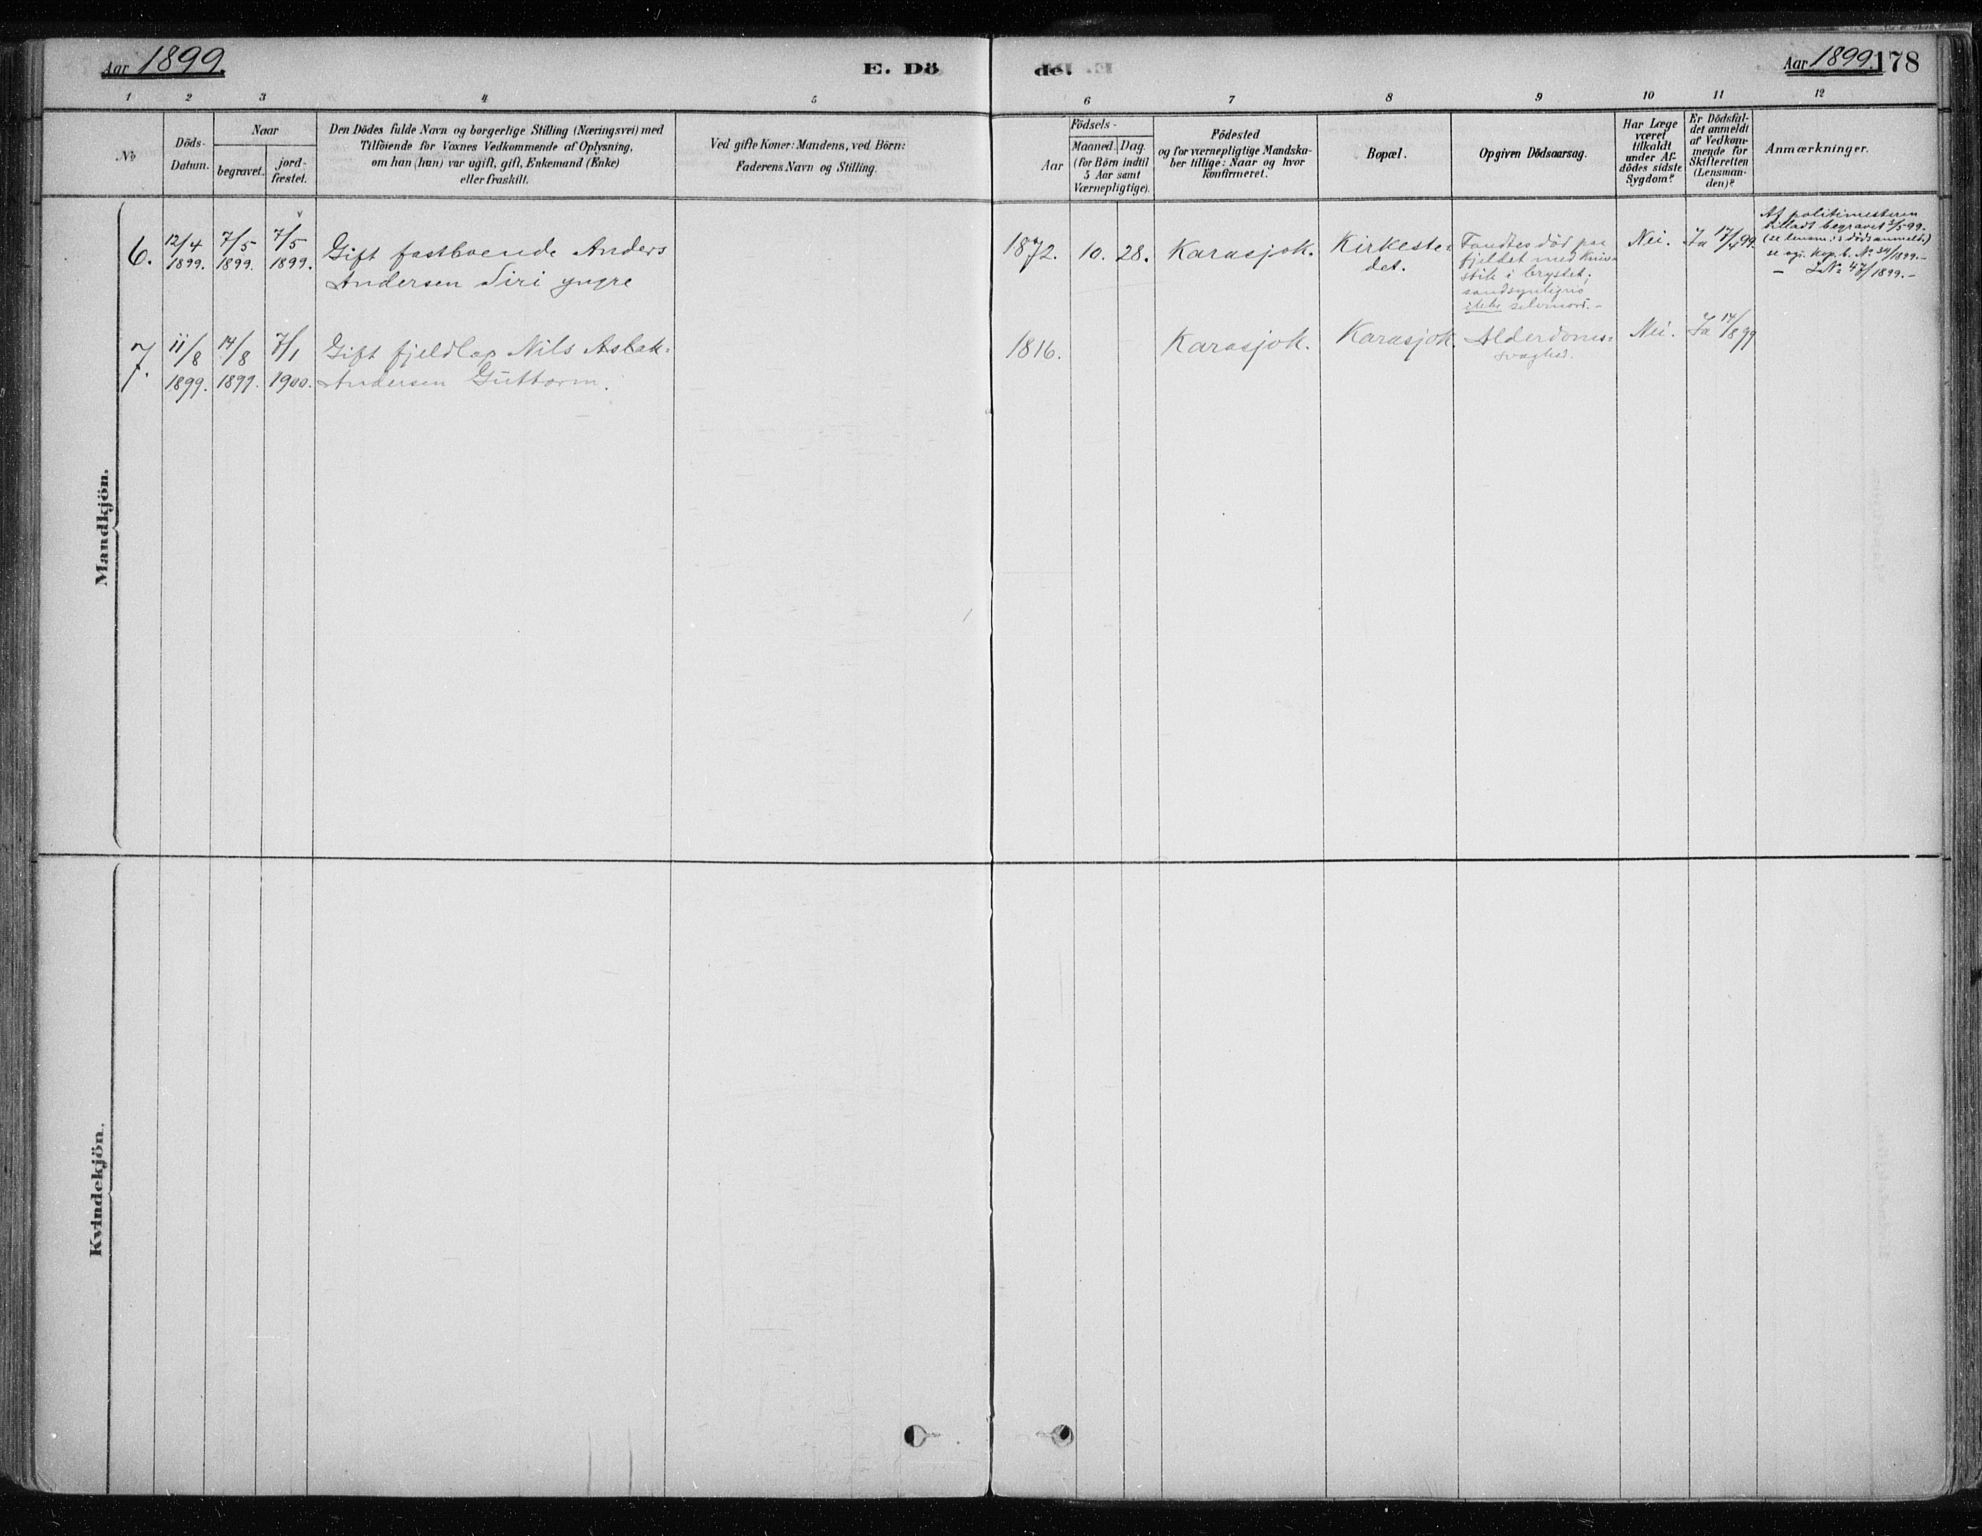 Aar 1899.
E. Dö
de.
Aar 1899. 178
1 2 3 4 5 6 7 8 9 10 11 12
No
Döds-
Datum.
Naar
begravet.
jord-
fæstet.
Den Dödes fulde Navn og borgerlige Stilling (Næringsvei) med
Tilföiende for Voxnes Vedkommende af Oplysning,
om han (hun) var ugift, gift, Enkemand (Enke)
eller fraskilt.
Ved gifte Koner: Mandens, ved Börn:
Faderens Navn og Stilling.
Födsels-
Aar
Maaned. Dag.
(for Börn indtil
5 Aar samt
Værnepligtige).
Födested
og for værnepligtige Mandska-
ber tillige: Naar og hvor
konfirmeret.
Bopæl.
Opgiven Dödsaarsag.
Har Læge
været
tilkaldt
under Af-
dödes sidste
Sygdom?
Er Dödsfal-
det anmeldt
af Vedkom-
mende for
Skifteretten
(Lensman-
den)?
Anmærkninger.
Mandkjön.
6.
12/4
1899.
7/5
1899.
7/5
1899.
Gift fastboende Anders
Andersen Siri yngre
1872. 10. 28.
Karasjok.
Kirkeste-
det.
Fandtes död paa
fjeldet med kniv-
stik i brystet;
sandsynligvis
ikke selvmord.-
Nei.
Ja 17/4 99.
Af politimesteren
tilladt begravet 3/5 99.
(se lensm:s dödsanmeld.)
se ogs. Kop. b. No 34/1899.-
- J No 47/1899.-
7.
11/8
1899.
14/8
1899.
7/1
1900.
Gift fjeldlap Nils Aslak-
Andersen Guttorm.
1816.
Karasjok.
Karasjok.
Alderdoms-
svaghed.
Nei.
Ja 14/8 99
Kvindekjön.